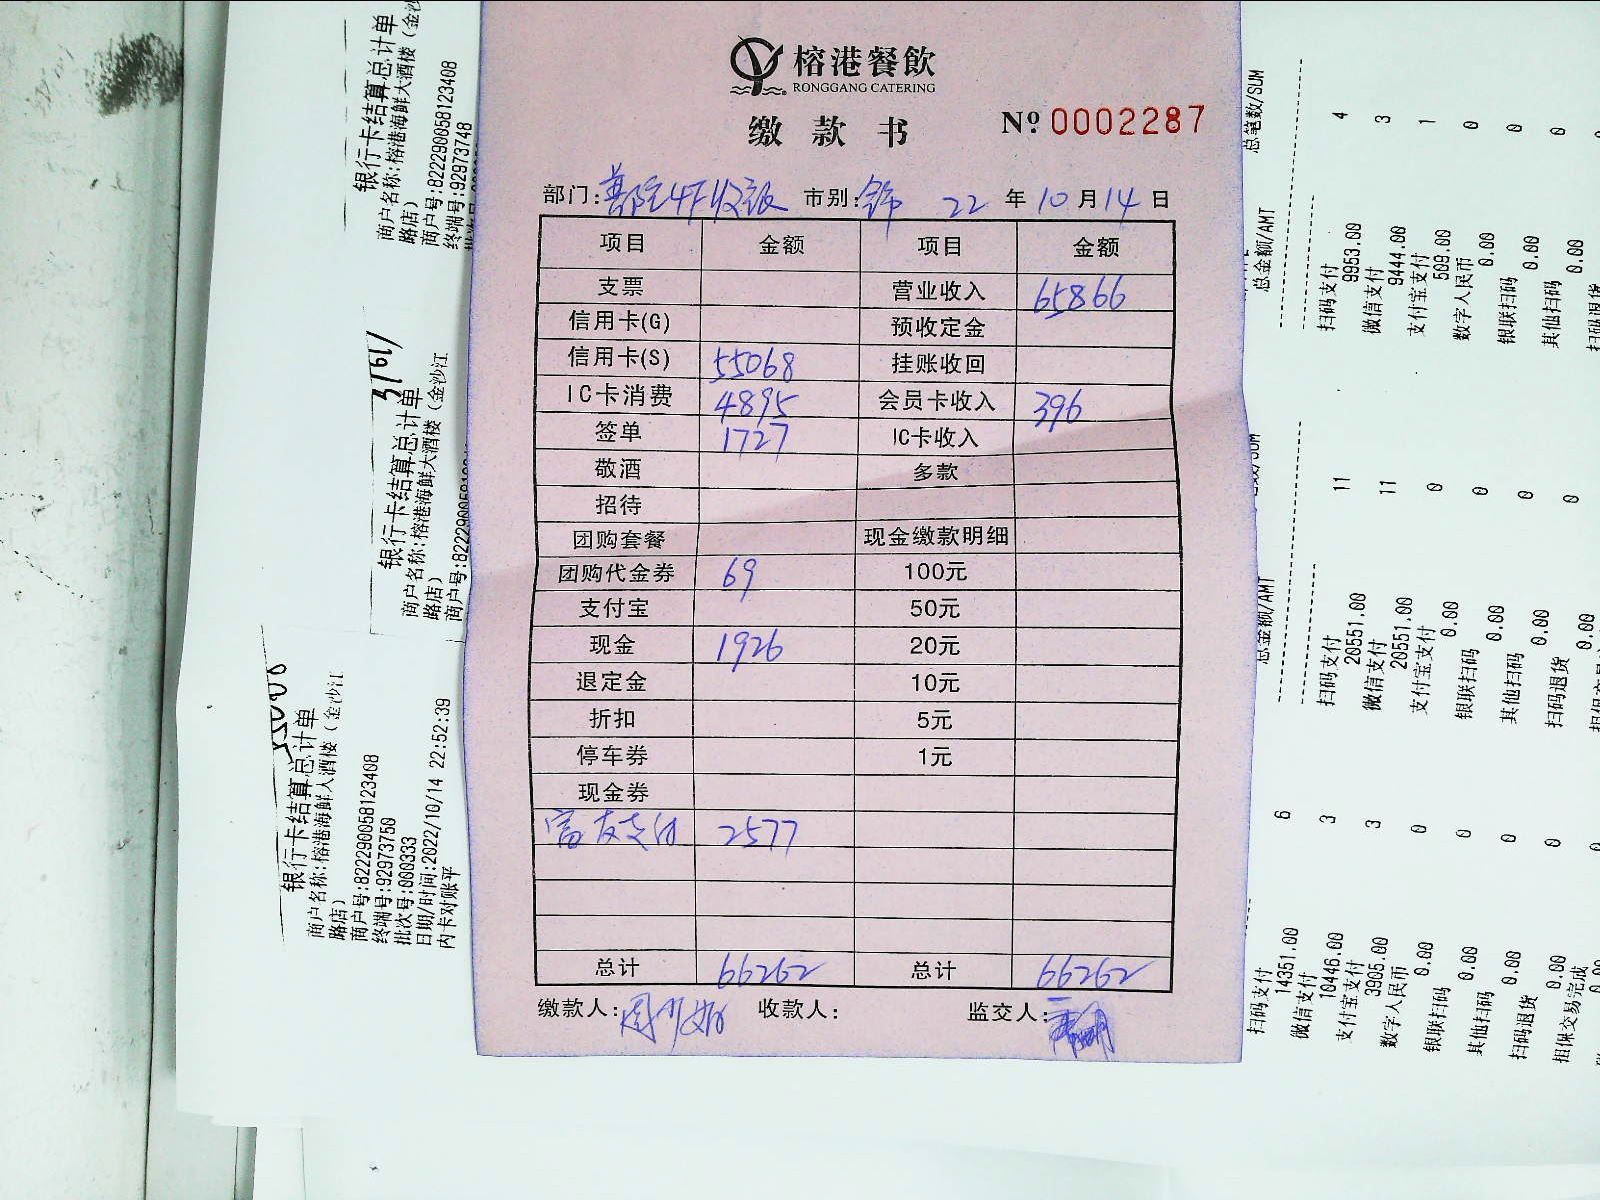 榕港餐飲
RONGGANG CATERING
缴款书
№ 0002287
部门: 4F收银 市别: 22 年 10 月 14 日
项目 金额 项目 金额
支票 营业收入 65866
信用卡(G) 预收定金
信用卡(S) 55068 挂账收回
IC卡消费 4895 会员卡收入 396
签单 1727 IC卡收入
敬酒 多款
招待
团购套餐 现金缴款明细
团购代金券 69 100元
支付宝 50元
现金 1926 20元
退定金 10元
折扣 5元
停车券 1元
现金券
富友支付 2577
总计 66262 总计 66262
缴款人: 收款人: 监交人:
银行卡结算总计单
商户名称:榕港海鲜大酒楼（金沙江
路店）
商户号:822290058123408
终端号:92973748
银行卡结算总计单
商户名称:榕港海鲜大酒楼（金沙江
路店）
银行卡结算总计单
商户名称:榕港海鲜大酒楼（金沙江
路店）
商户号:822290058123408
终端号:92973750
批次号:000333
日期/时间:2022/10/14 22:52:39
内卡对账平
总金额/AMT 总笔数/SUM
扫码支付
9953.00 4
微信支付
9444.00 3
支付宝支付
509.00 1
数字人民币
0.00 0
银联扫码
0.00 0
其他扫码
0.00 0
扫码退货
总金额/AMT
扫码支付
20551.00 11
微信支付
20551.00 11
支付宝支付
0.00 0
银联扫码
0.00 0
其他扫码
0.00 0
扫码退货
0.00 0
扫码支付
14351.00 6
微信支付
10446.00 3
支付宝支付
3905.00 3
数字人民币
0.00 0
银联扫码
0.00 0
其他扫码
0.00 0
扫码退货
0.00 0
担保交易完成